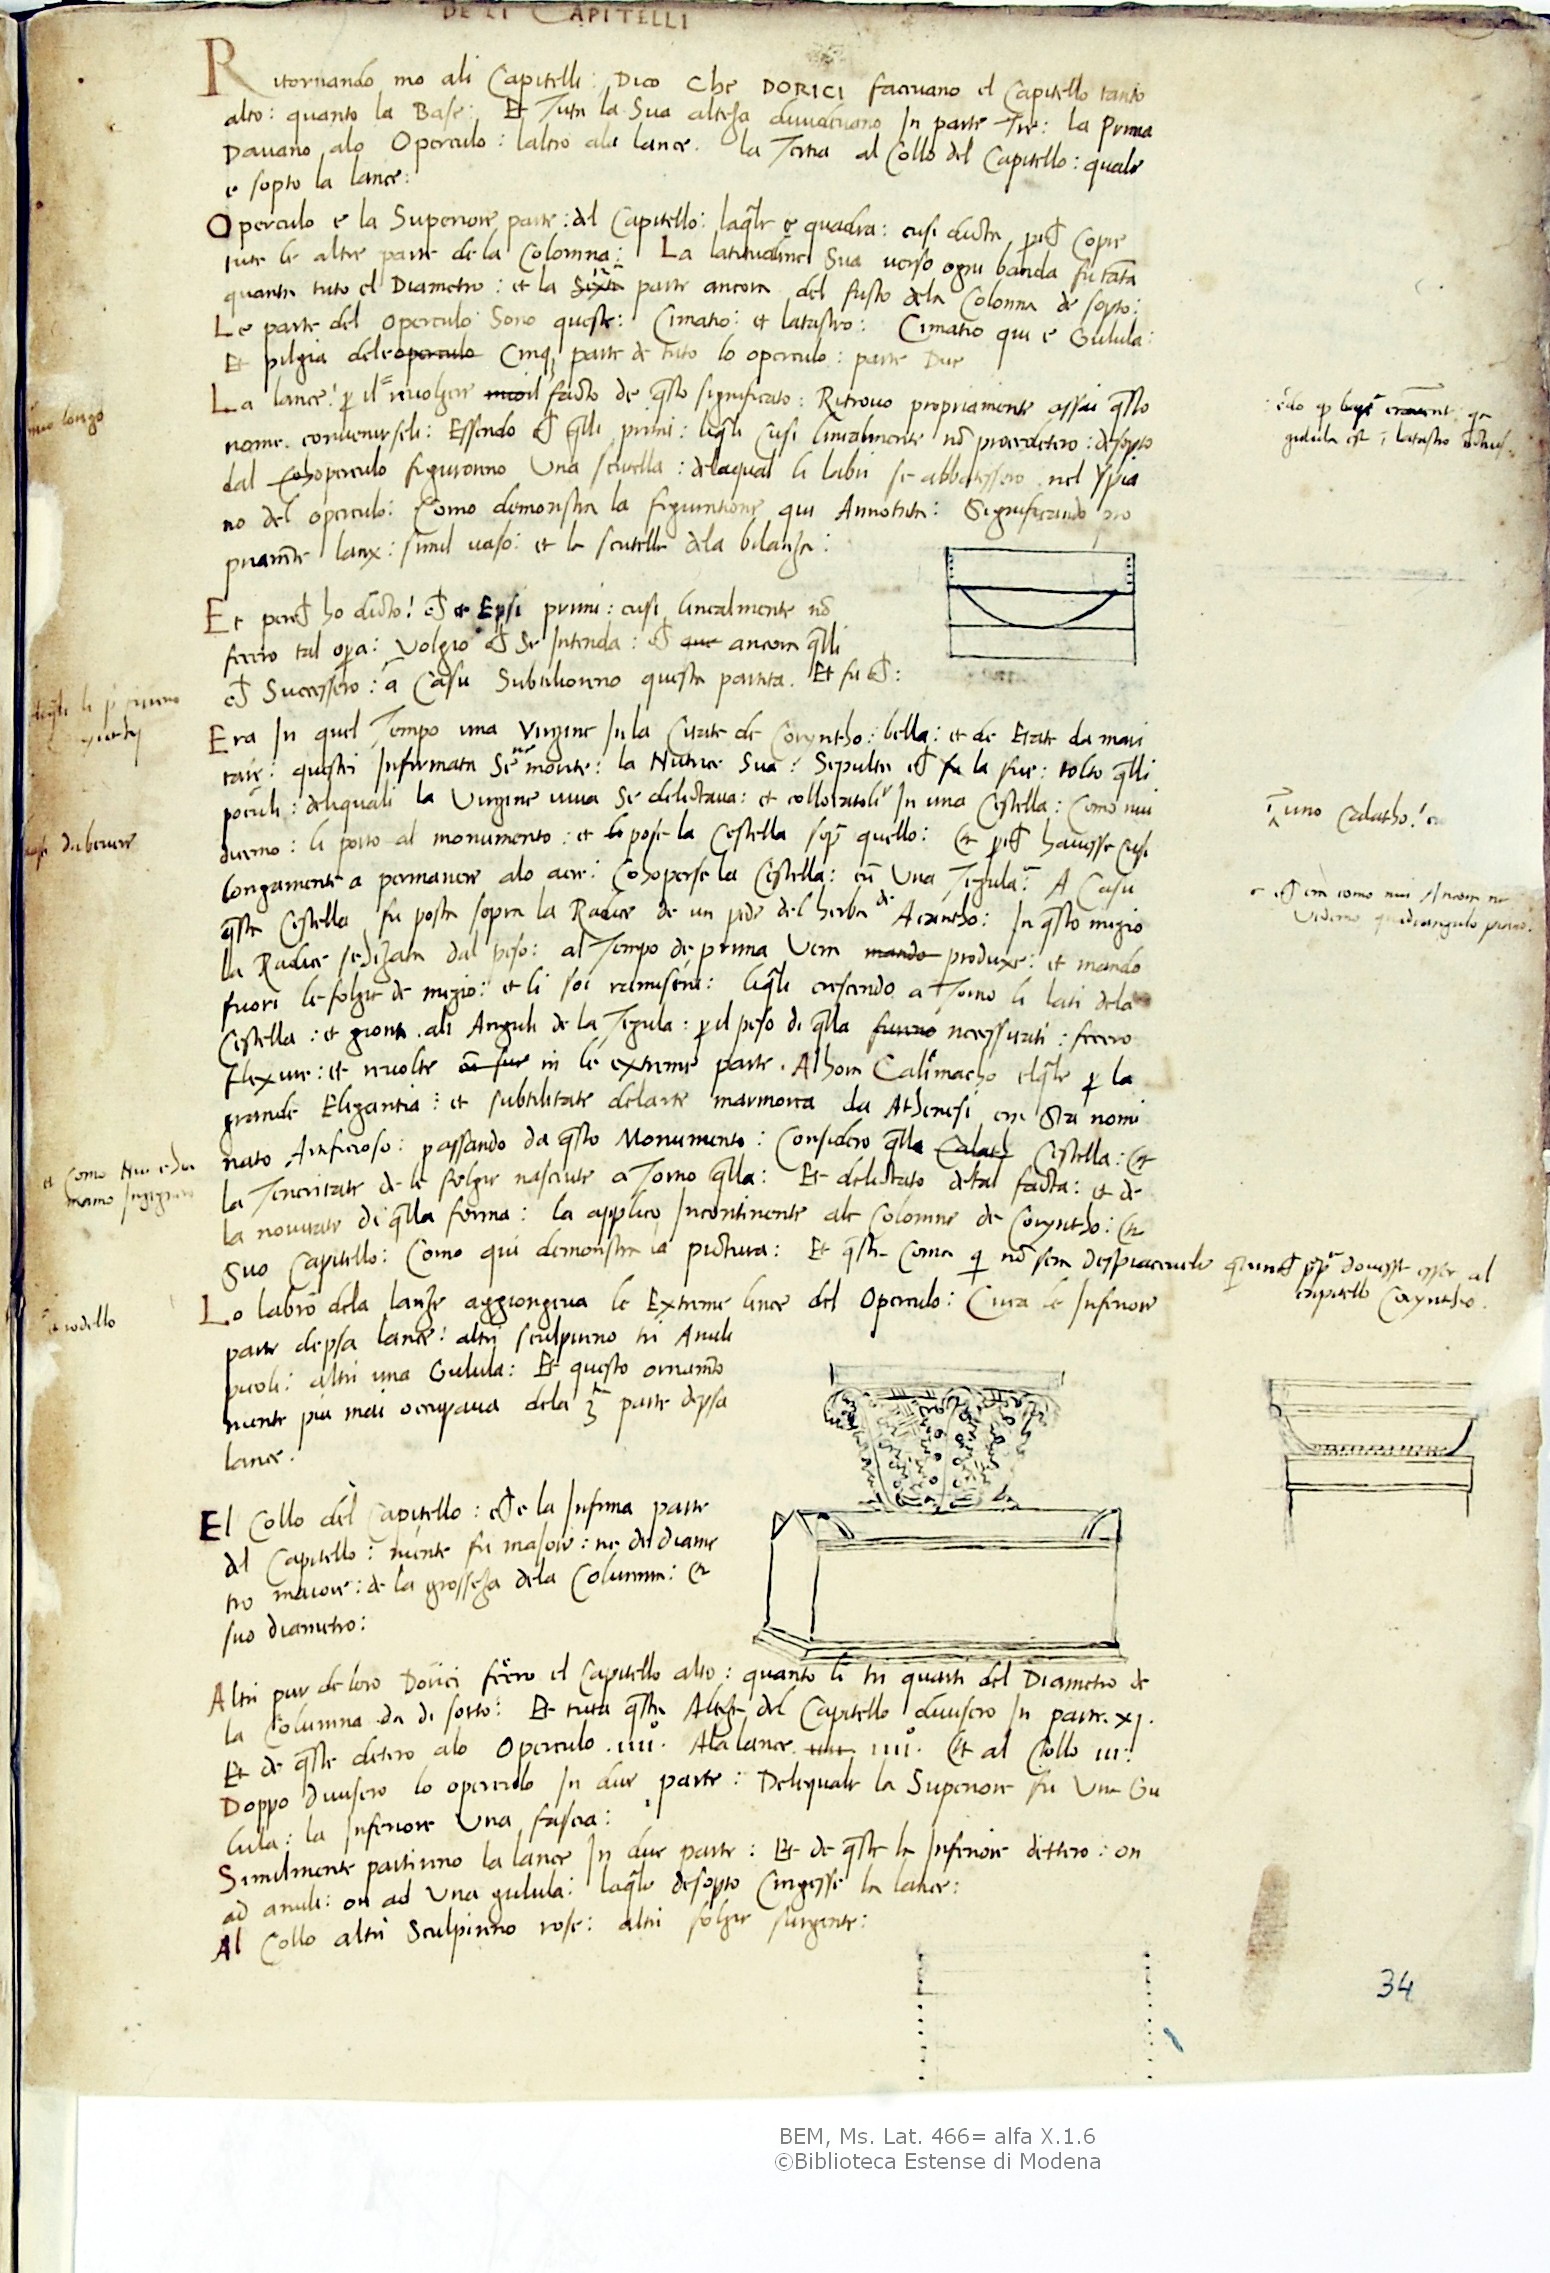 DE LI CAPITELLI
Ritornando mo ali Capitelli: Dico Che DORICI faceuano el Capitello tanto
alto: quanto la Base: Et Tuta la Sua alteza diuideuano In parte Tre: la Prima
Dauano alo Operculo: laltro ala lance. la Tertia al Collo del Capitello: quale
e sopto la lance:
Operculo e la Superiore parte: del Capitello: laq̃le e quadra: cusi dicta
tute le altre parte de la Colomna: La latitudine Sua uerso ogni banda fu tãta
quanta tuto el Diametro: et la parte ancora del fusto dela Colonna de sopto:
Le parte del Operculo Sono queste: Cimatio: et latastro: Cimatio qui e Gulula:
Et pilgia dele operculo Cinq parte de tuto lo operculo: parte Due
La lance: p il reuolgere facto de q̃sto significato: Ritrouo propriamente assai q̃sto
nome conuenirseli: Essendo q̃lli primi: liq̃li Cusi linealmente nõ procedetero: desopto
dal operculo figurorno Una scutella: delaqual li labri se abbatessero nel Ypia
no del operculo: Como demonstra la figuratione qui Annotata: Significando pro
priamẽte lanx: simil uaso: et le scutelle dela bilanza:
Et ho dicto: et Epsi primi: cusi linealmente nõ
fecero tal opa: Volgio Se Intenda: ancora q̃lli
Successero: a Casu Subtiliorno questa partita. Et fu
Era In quel Tempo una Virgine In la Citate de Coryntho: bella: et de Etate da mari
tare: questa Infirmata Se ne morite: la Nutrice Sua: Sepulta la fue: tolto q̃lli
poculi: deliquali la Virgine uiua Se delectaua: et collocatoli In una Cestella: Como nui
diremo: li porto al monumento: et pose la Cestella sop̃ quello: Et hauesse Cusi
longamente a permanere alo aere: Cohoperse la Cestella: cũ Una Tegula: A Casu
q̃sta Cestella fu posta sopra la Radice de un pede del herba de Acantho: In q̃sto megio
la Radice dal peso: al Tempo de prima Vera mando produxe: et mando
fuori le folgie de megio: et li soi ramiseli: liq̃li crescendo a Torno li lati dela
Cestella: et gionta ali Anguli de la Tegula: p il peso di q̃lla necessitati: fecero
flexure: et reuolte in le extreme parte. Alhora Calimacho elq̃le p la
grande Elegantia: et subtilitate delarte marmorea da Athenesi era Sta nomi
nato Artificioso: passando da q̃sto Monumento: Considero q̃lla Cestella: Et
la Teneritate de le folgie nascute a Torno q̃lla: Et delectato detal facta: et de
la nouitate di q̃lla forma: la applico Incontinente ale Colomne de Coryntho: Et
Suo Capitello: Como qui demonstra la pictura: Et q̃sta Coma nõ sera despiaceuole
Lo labro dela lanze aggiongeua le Extreme linee del Operculo: Circa le Inferiore
parte depsa lance: altri sculpirno tri Anuli
picoli: altri una Gulula: Et questo ornamẽto
niente piu mai ocupaua dela parte depsa
lance.
El Collo del Capitello: e la Infima parte
del Capitello: niente fu masore: ne de diame
tro maiore: de la grosseza dela Columna: Et
suo diametro:
Altri pur de loro Dorici fecero el Capitello alto: quanto li tri quarti del Diametro de
la Columna da di sotto: Et tuta q̃sta Alteze del Capitello diuisero In parte .xj.
Et de q̃ste detero alo Operculo .iiii. Ala lance iiii. Et al Collo iii:
Doppo diuisero lo operculo In due parte: Delequale la Superiore fu Una Gu
lula: la Inferiore Una fascia:
Similmente partirno la lance In due parte: Et de q̃ste la Inferiore dettero: on
ad anuli: on ad Una gulula: laq̃le desopto Cingesse la lance:
Al Collo altri Sculpirno rose: altri folgie surgente:
longo
gulula est i latastro
da beuere
uno Calatho:
como nui Ancora
Videmo quadrangulo
et Como Nui
douesse esser al
capitello Coryntho.
34
BEM, Ms. Lat. 466= alfa X.1.6
©Biblioteca Estense di Modena